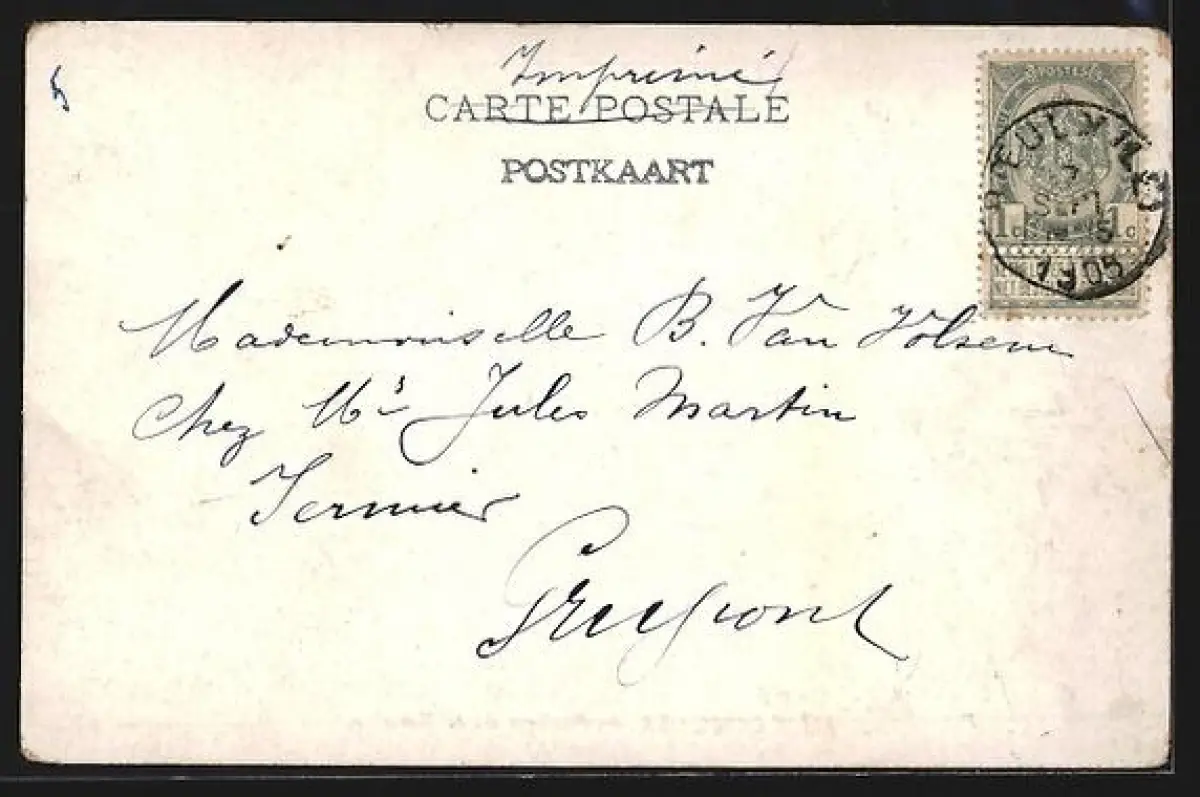 Imprimé
CARTE POSTALE
POSTKAART
POSTES
1c 1c
SEPT
1905
Mademoiselle B. Van Volsem
Chez Mr Jules Martin
5